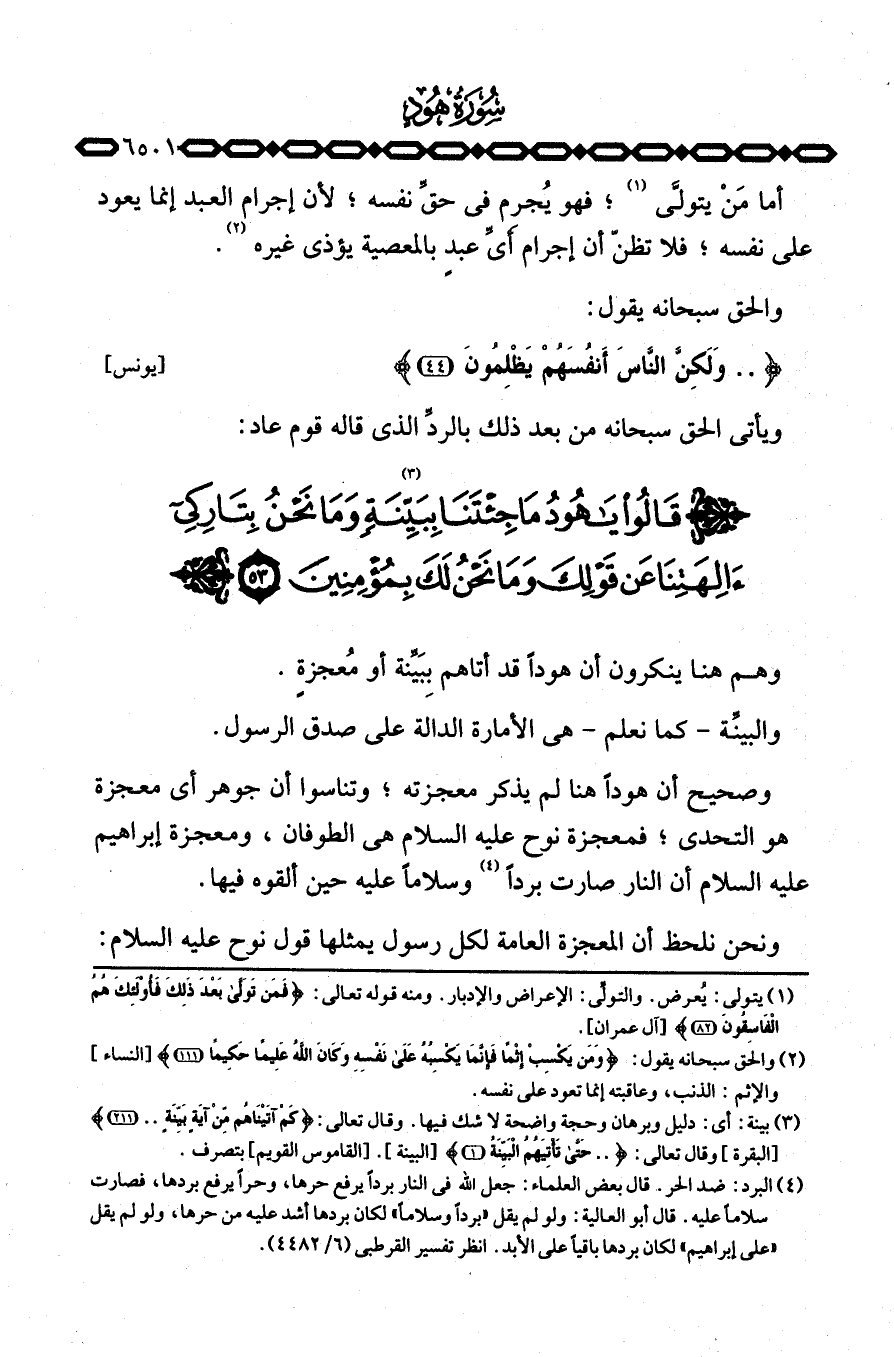 سُورَةُ هُودٍ
٦٥٠١
أما مَنْ يتولَّى (١) ؛ فهو يُجرِم فى حقِّ نفسه ؛ لأن إجرام العبد إنما يعود
على نفسه ؛ فلا تظنّ أن إجرام أىِّ عبدٍ بالمعصية يؤذى غيره (٢) .
والحق سبحانه يقول:
﴿ .. وَلَكِنَّ النَّاسَ أَنفُسَهُمْ يَظْلِمُونَ (٤٤) ﴾ [يونس]
ويأتى الحق سبحانه من بعد ذلك بالردِّ الذى قاله قوم عاد:
﴿ قَالُوا۟ يَٰهُودُ مَا جِئْتَنَا بِبَيِّنَةٍ (٣) وَمَا نَحْنُ بِتَارِكِىٓ
ءَالِهَتِنَا عَن قَوْلِكَ وَمَا نَحْنُ لَكَ بِمُؤْمِنِينَ ٥٣ ﴾
وهـم هنـا ينكرون أن هوداً قد أتاهم بِبَيِّنة أو مُعجزةٍ .
والبينِّة - كما نعلم - هى الأمارة الدالة على صدق الرسول.
وصحيح أن هوداً هنا لم يذكر معجزته ؛ وتناسوا أن جوهر أى معجزة
هو التحدى ؛ فمعجزة نوح عليه السلام هى الطوفان ، ومعجزة إبراهيم
عليه السلام أن النار صارت برداً (٤) وسلاماً عليه حين ألقوه فيها.
ونحن نلحظ أن المعجزة العامة لكل رسول يمثلها قول نوح عليه السلام:
(١) يتولى: يُعرض. والتولِّى: الإعراض والإدبار. ومنه قوله تعالى: ﴿ فَمَن تَوَلَّىٰ بَعْدَ ذَلِكَ فَأُوْلَئِكَ هُمُ
الْفَاسِقُونَ (٨٢) ﴾ [آل عمران].
(٢) والحق سبحانه يقول: ﴿ وَمَن يَكْسِبْ إِثْمًا فَإِنَّمَا يَكْسِبُهُ عَلَىٰ نَفْسِهِ وَكَانَ اللَّهُ عَلِيمًا حَكِيمًا (١١١) ﴾ [النساء ]
والإثم : الذنب، وعاقبته إنما تعود على نفسه.
(٣) بينة: أى: دليل وبرهان وحجة واضحة لا شك فيها. وقال تعالى: ﴿ كَمْ آتَيْنَاهُم مِّنْ آيَةٍ بَيِّنَةٍ .. (٢١١) ﴾
[البقرة ] وقال تعالى: ﴿ .. حَتَّىٰ تَأْتِيَهُمُ الْبَيِّنَةُ (١) ﴾ [البينة ]. [القاموس القويم] بتصرف .
(٤) البرد: ضد الحر. قال بعض العلماء: جعل الله فى النار برداً يرفع حرها، وحراً يرفع بردها، فصارت
سلاماً عليه. قال أبو العالية: ولو لم يقل «برداً وسلاماً» لكان بردها أشد عليه من حرها، ولو لم يقل
«على إبراهيم» لكان بردها باقياً على الأبد. انظر تفسير القرطبى (٦/ ٤٤٨٢).